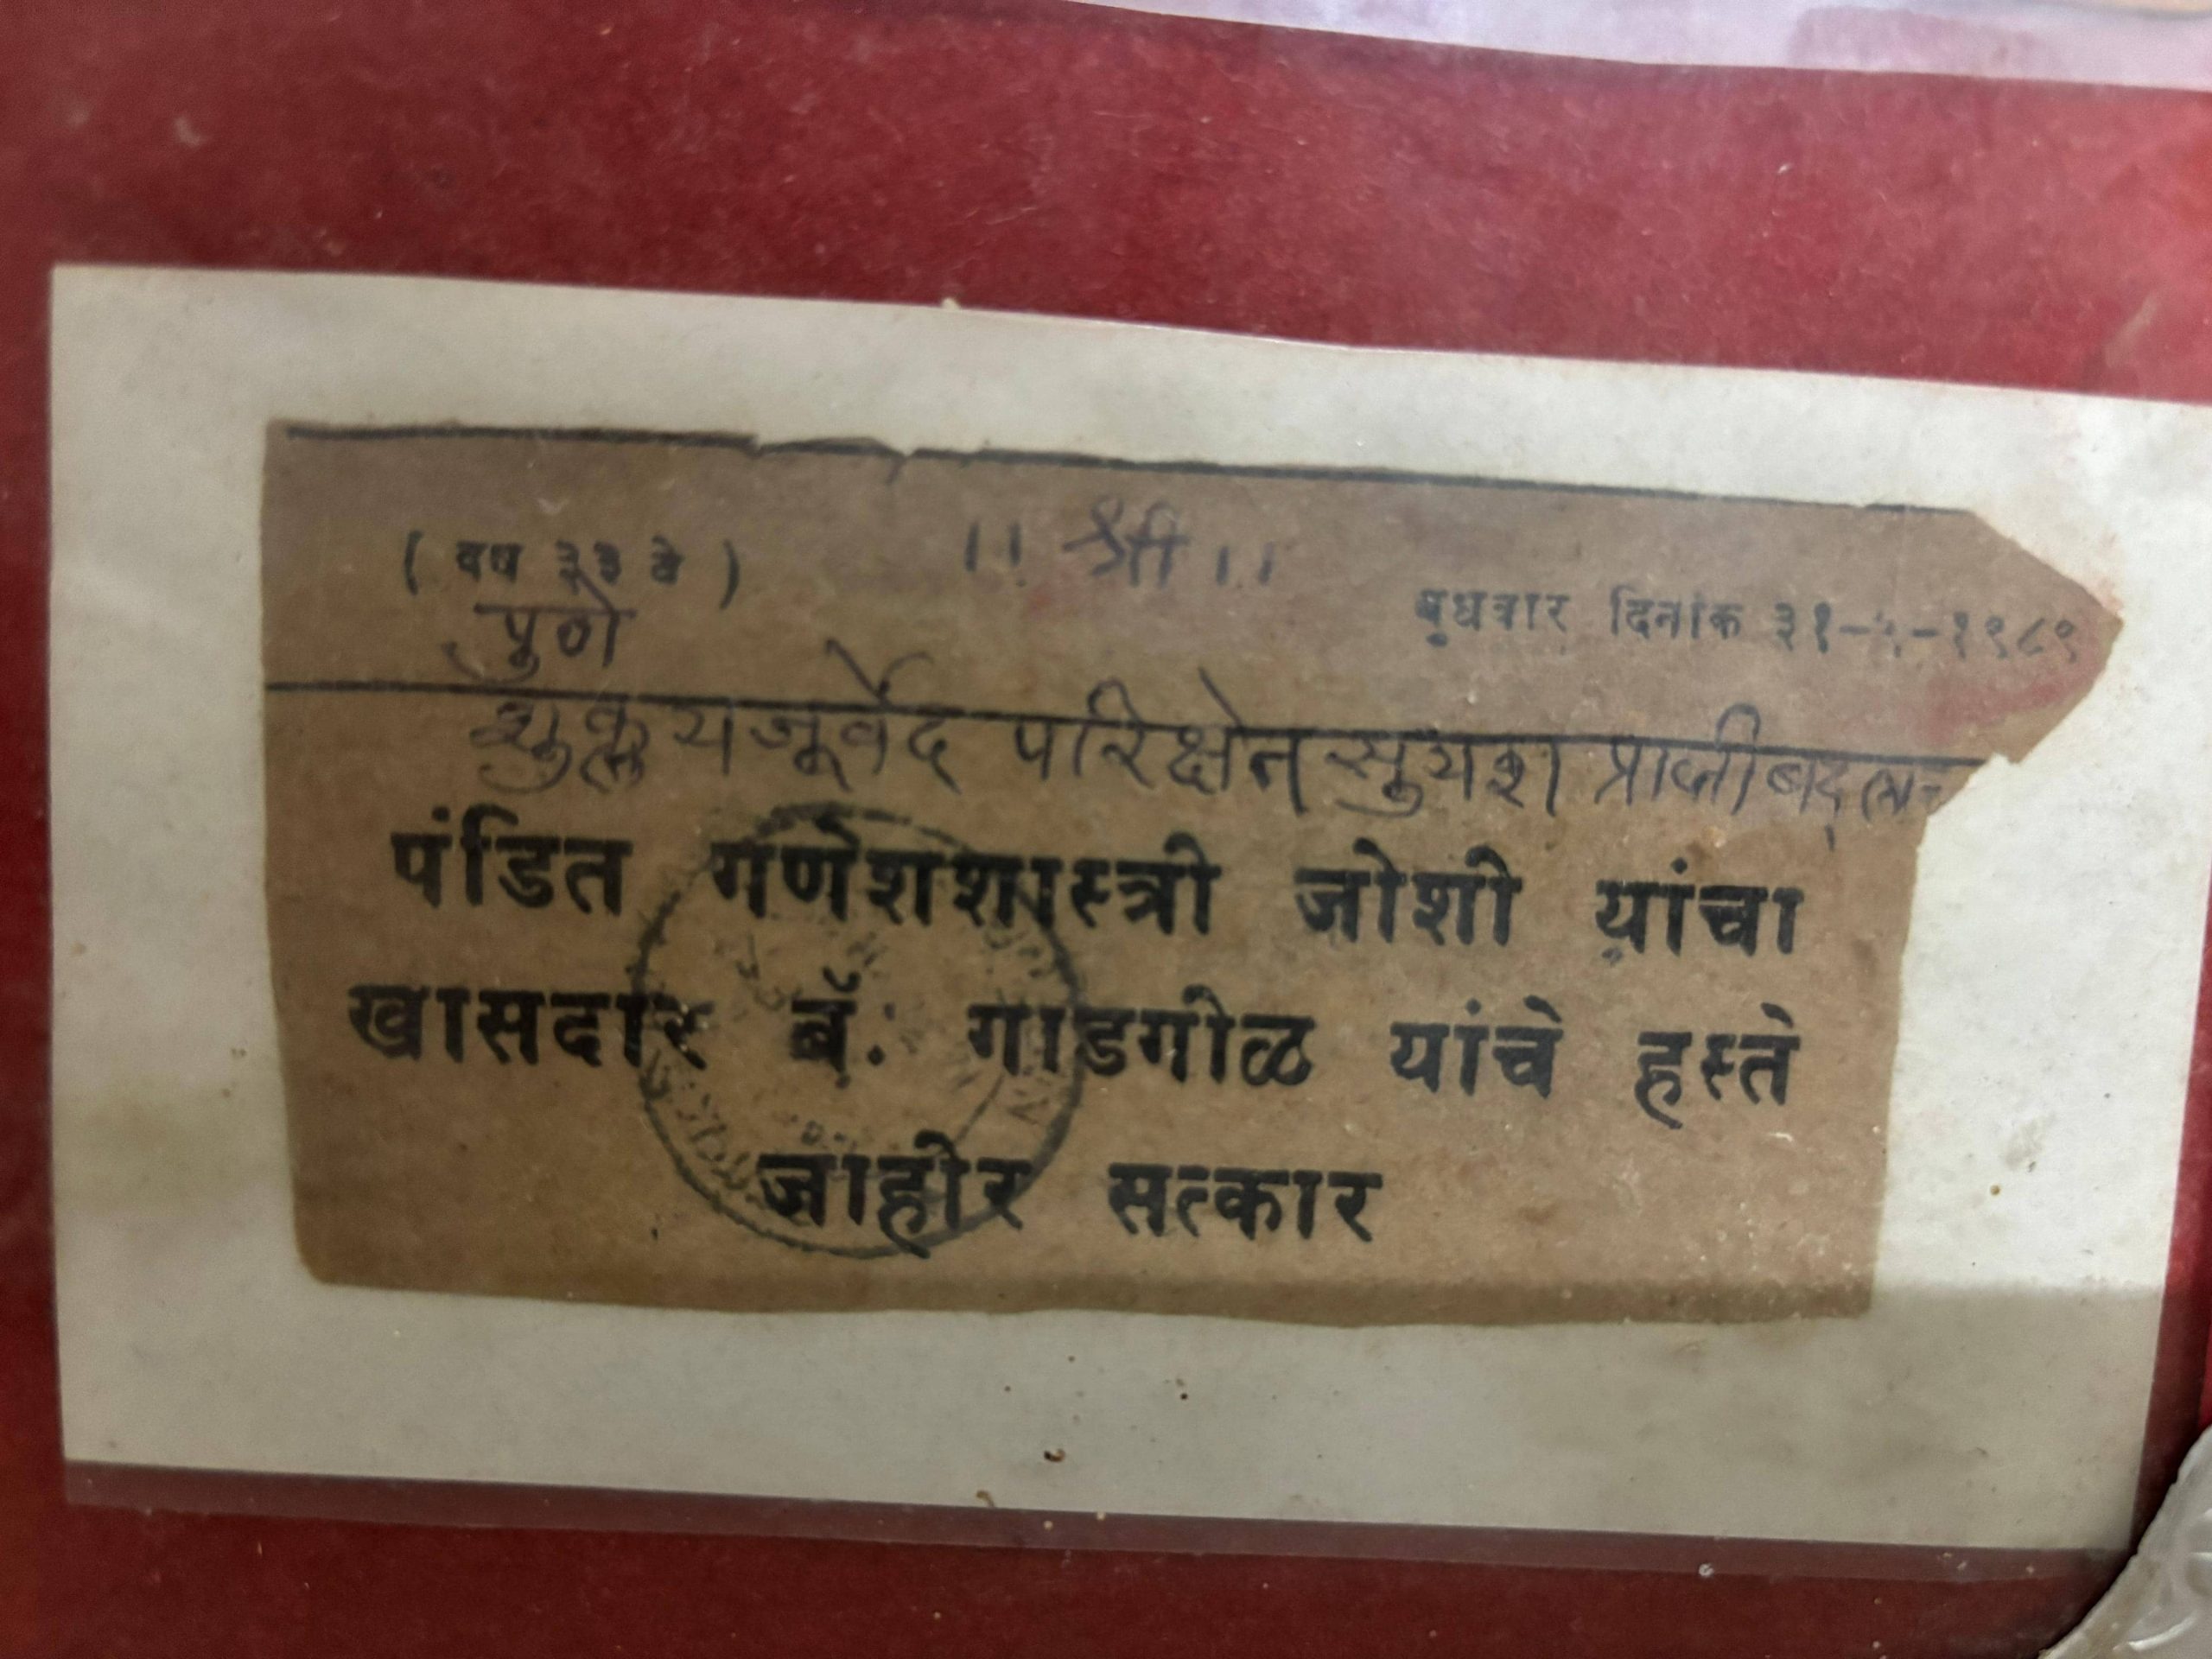 ॥ श्री ॥
( वर्ष ३३ वे )
बुधवार दिनांक ३१-५-१९८९
पुणे
शुक्लयजूर्वेद परिक्षेत सुयश प्राप्तीबद्दल
पंडित गणेशशास्त्री जोशी यांचा
खासदार बॅ. गाडगीळ यांचे हस्ते
जाहीर सत्कार